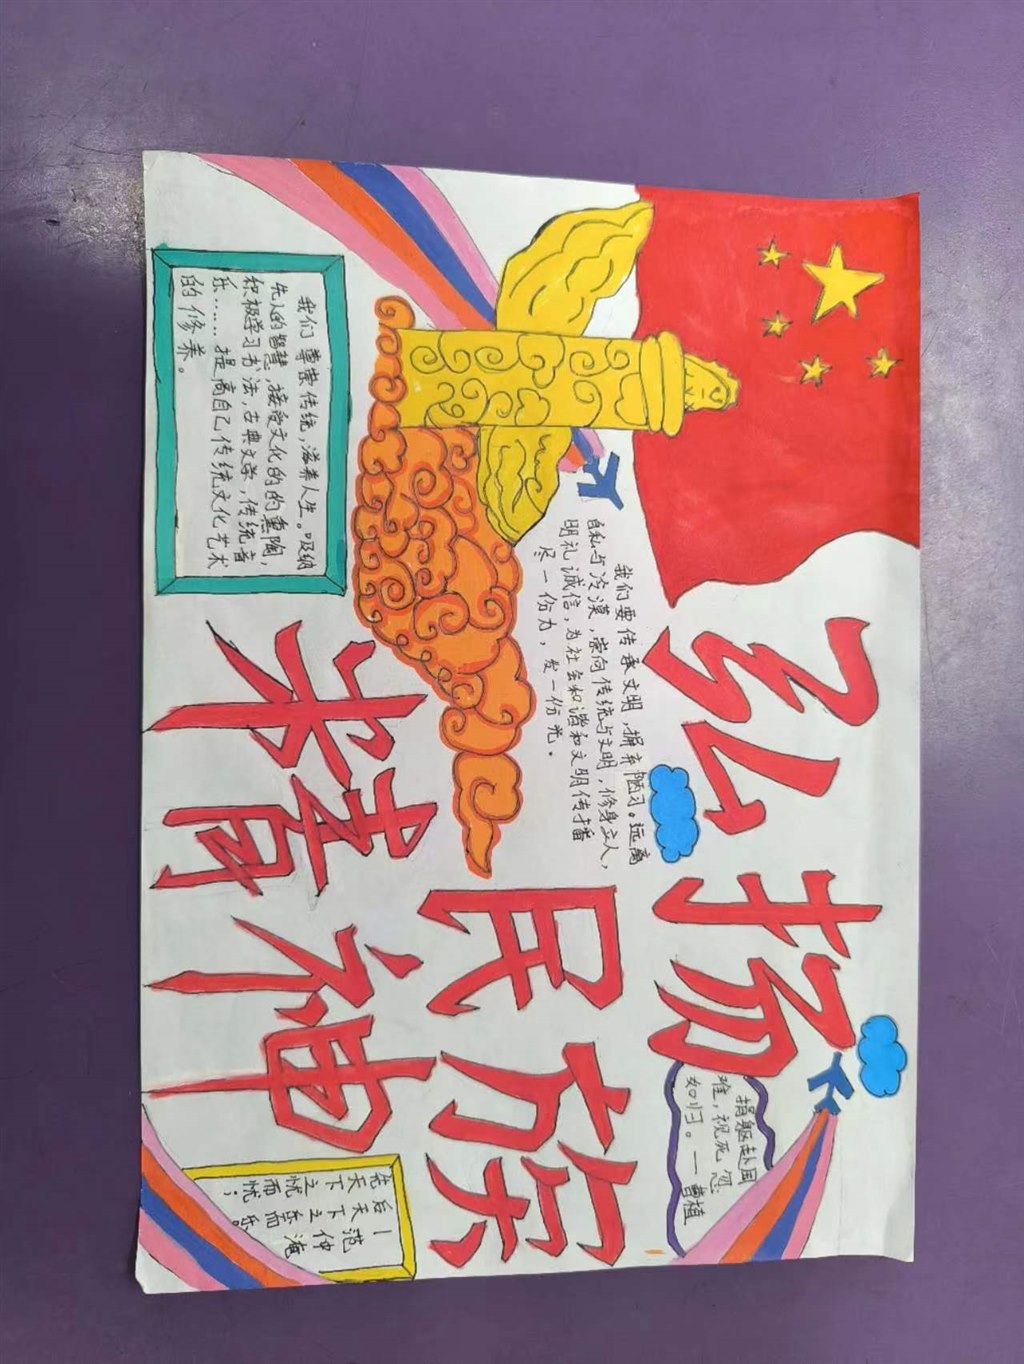 弘扬
民族
精神
我们要传承文明,摒弃陋习。远离
自私与冷漠,崇向传统与文明,修身立人,
明礼诚信,为社会和谐和文明传播
尽一份力,发一份光。
捐躯赴国
难,视死忽
如归。一曹植
我们尊崇传统,滋养人生。吸纳
先人的智慧,接受文化的的熏陶,
积极学习书法,古典文学,传统音
乐……提高自己传统文化艺术
的修养。
先天下之忧而忧;
后天下之乐而乐。
—范仲淹